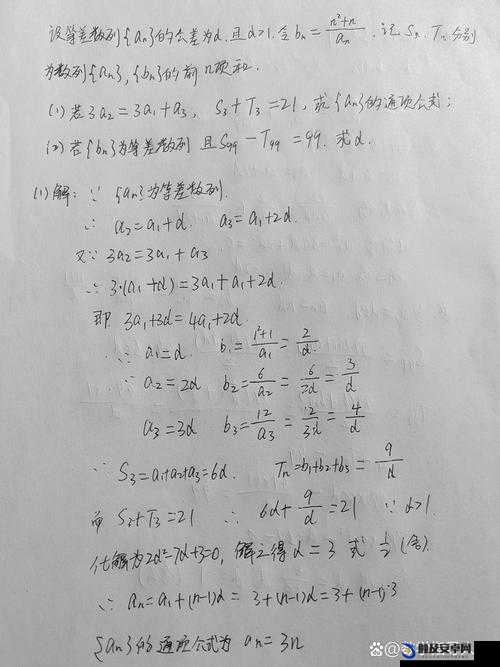 设等差数列{an}的公差为d,且d>1,令bn=(n²+n)/an,记Sn、Tn分别
为数列{an},{bn}的前n项和.
(1)若3a2=3a1+a3, S3+T3=21,求{an}的通项公式;
(2)若{bn}为等差数列 且S99-T99=99.求d.
(1)解: ∵ {an}为等差数列.
∴ a2=a1+d. a3=a1+2d.
又∵ 3a2=3a1+a3
∴ 3·(a1+d)=3a1+a1+2d.
即 3a1+3d=4a1+2d
∴ a1=d. b1=(1²+1)/a1=2/d.
∴ a2=2d b2=6/a2=6/2d=3/d
a3=3d b3=12/a3=12/3d=4/d
∵ S3=a1+a2+a3=6d. Tn=b1+b2+b3=9/d
而 S3+T3=21 ∴ 6d+9/d=21 ∵ d>1.
化解为2d²-7d+3=0,解之得d=3 或 1/2(舍).
∴ an=a1+(n-1)d=3+(n-1)d=3+(n-1)·3
{an}的通项公式为 an=3n